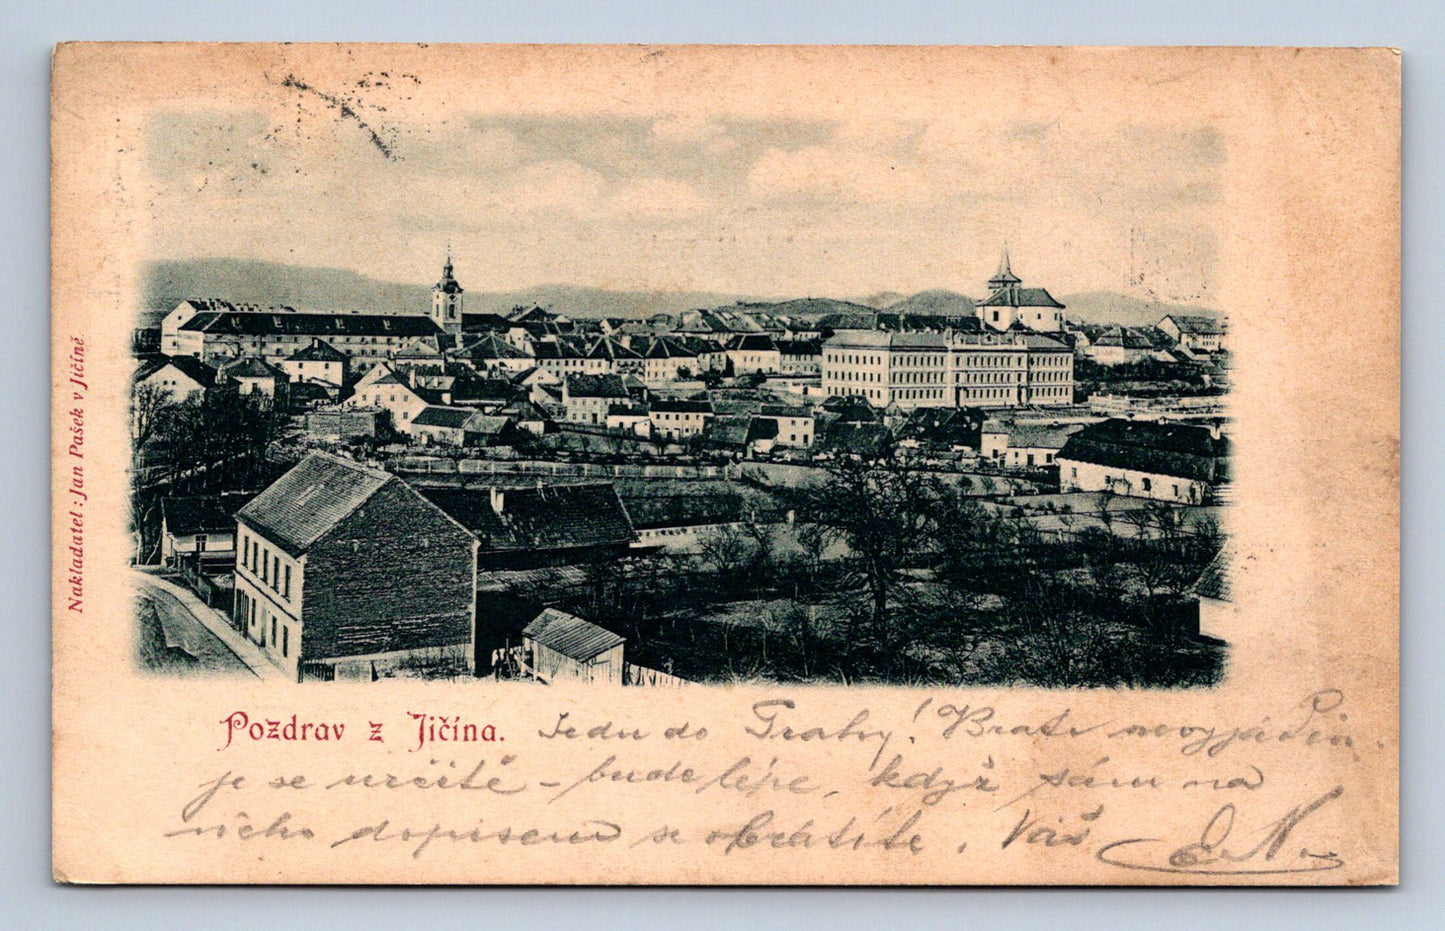 Nakladatel : Jan Pašek v Jičíně
Pozdrav z Jičína. Jedu do Prahy! Bratr
je se určitě – bude lépe, když sám na
něho dopisem se obrátíte. Váš